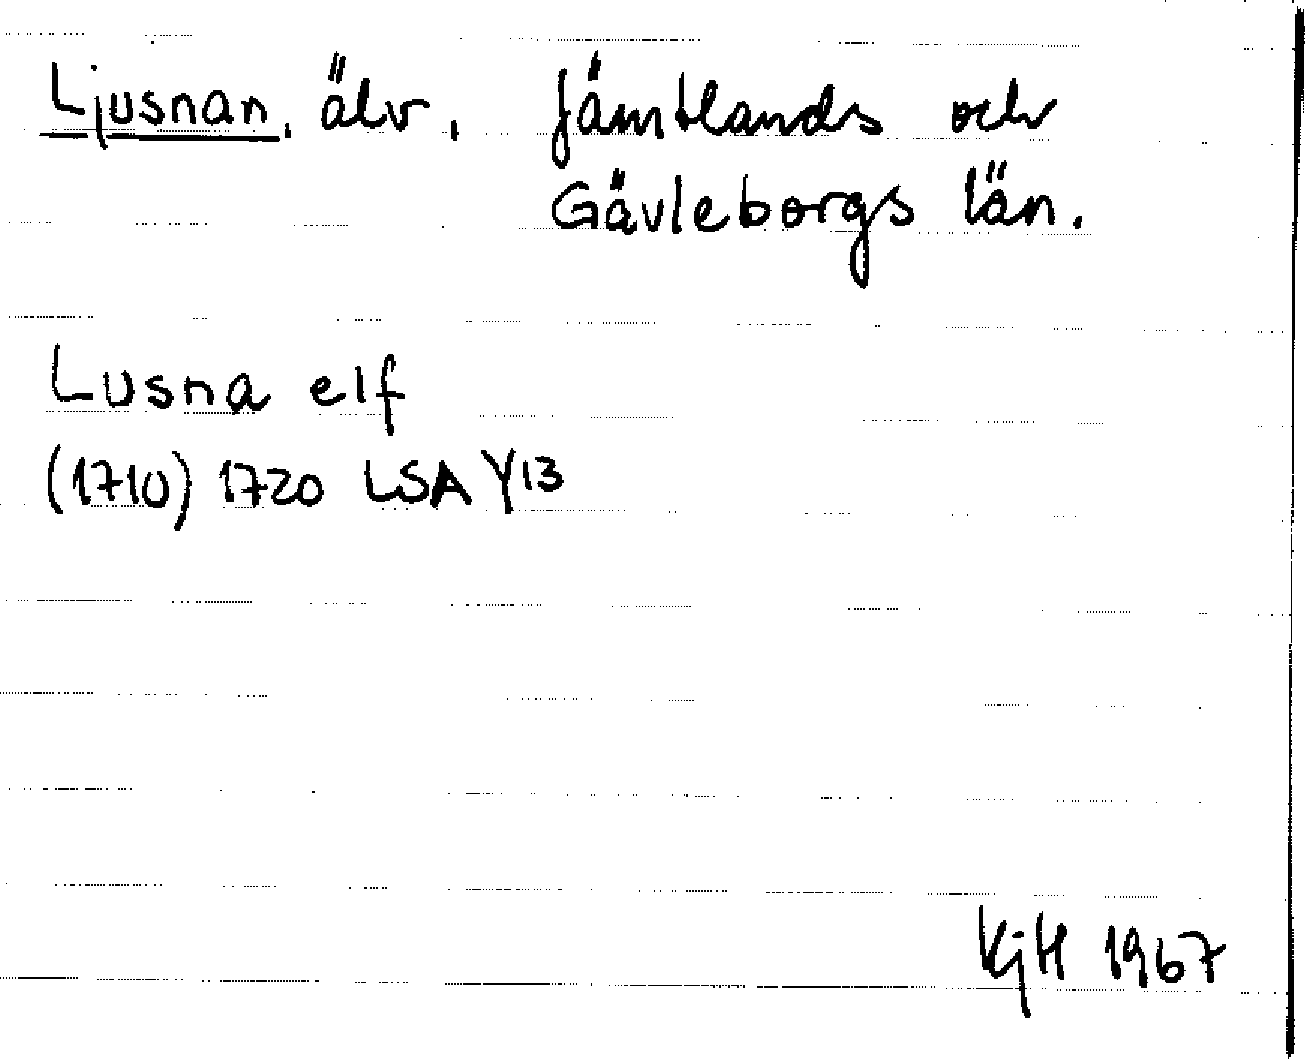 Ljusnan, älv, Jämtlands och
Gävleborgs län.
Lusna elf
(1710) 1720 LSA Y13
KjH 1967